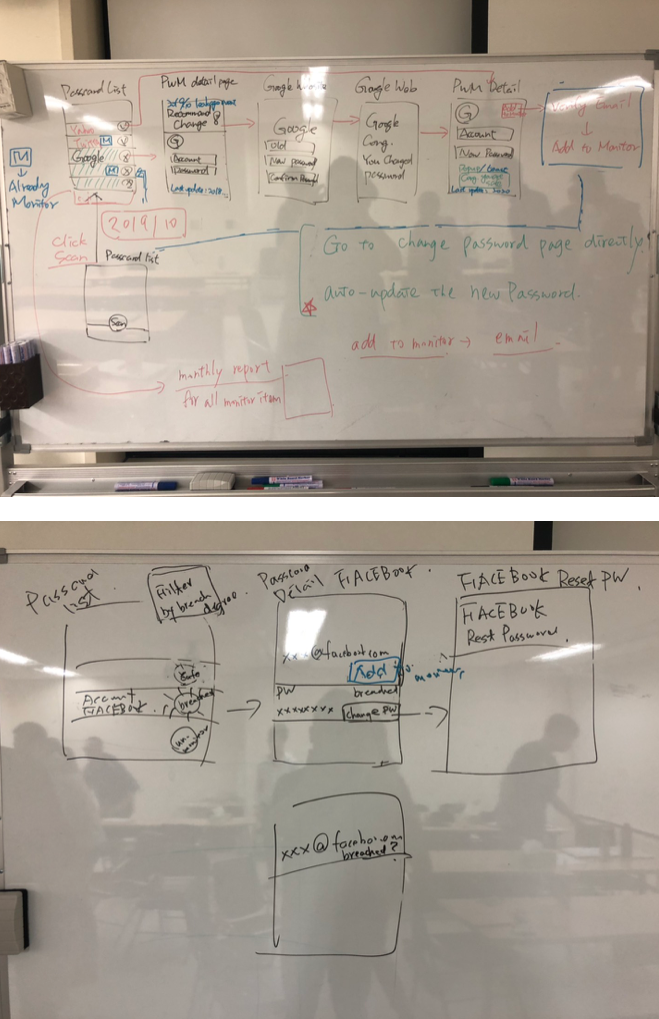 Password List
PWM detail page
Google Website
Google Web
PWM Detail
Yahoo
M
Google
M
M
Already
Monitor
Recommand
Change
G
Account
Password
Last update: 2018
Google
Old
New password
Confirm
Google
Cong.
You Changed
password
G
Account
New Password
Last update: 2020
Verify Email
Add to Monitor
2019/10
Click
Scan
Password list
Scan
Go to change password page directly
auto-update the new Password.
add to monitor → email
monthly report
for all monitor item
Password
List
Filter
by breach
degree
Safe
Account
FACEBOOK
breached
Password
Detail FACEBOOK
xxx@facebook.com
Add to
monitor
PW
breached
xxxxxxxx
change PW
FACEBOOK Reset PW.
FACEBOOK
Rest Password
xxx@facebo
breached?